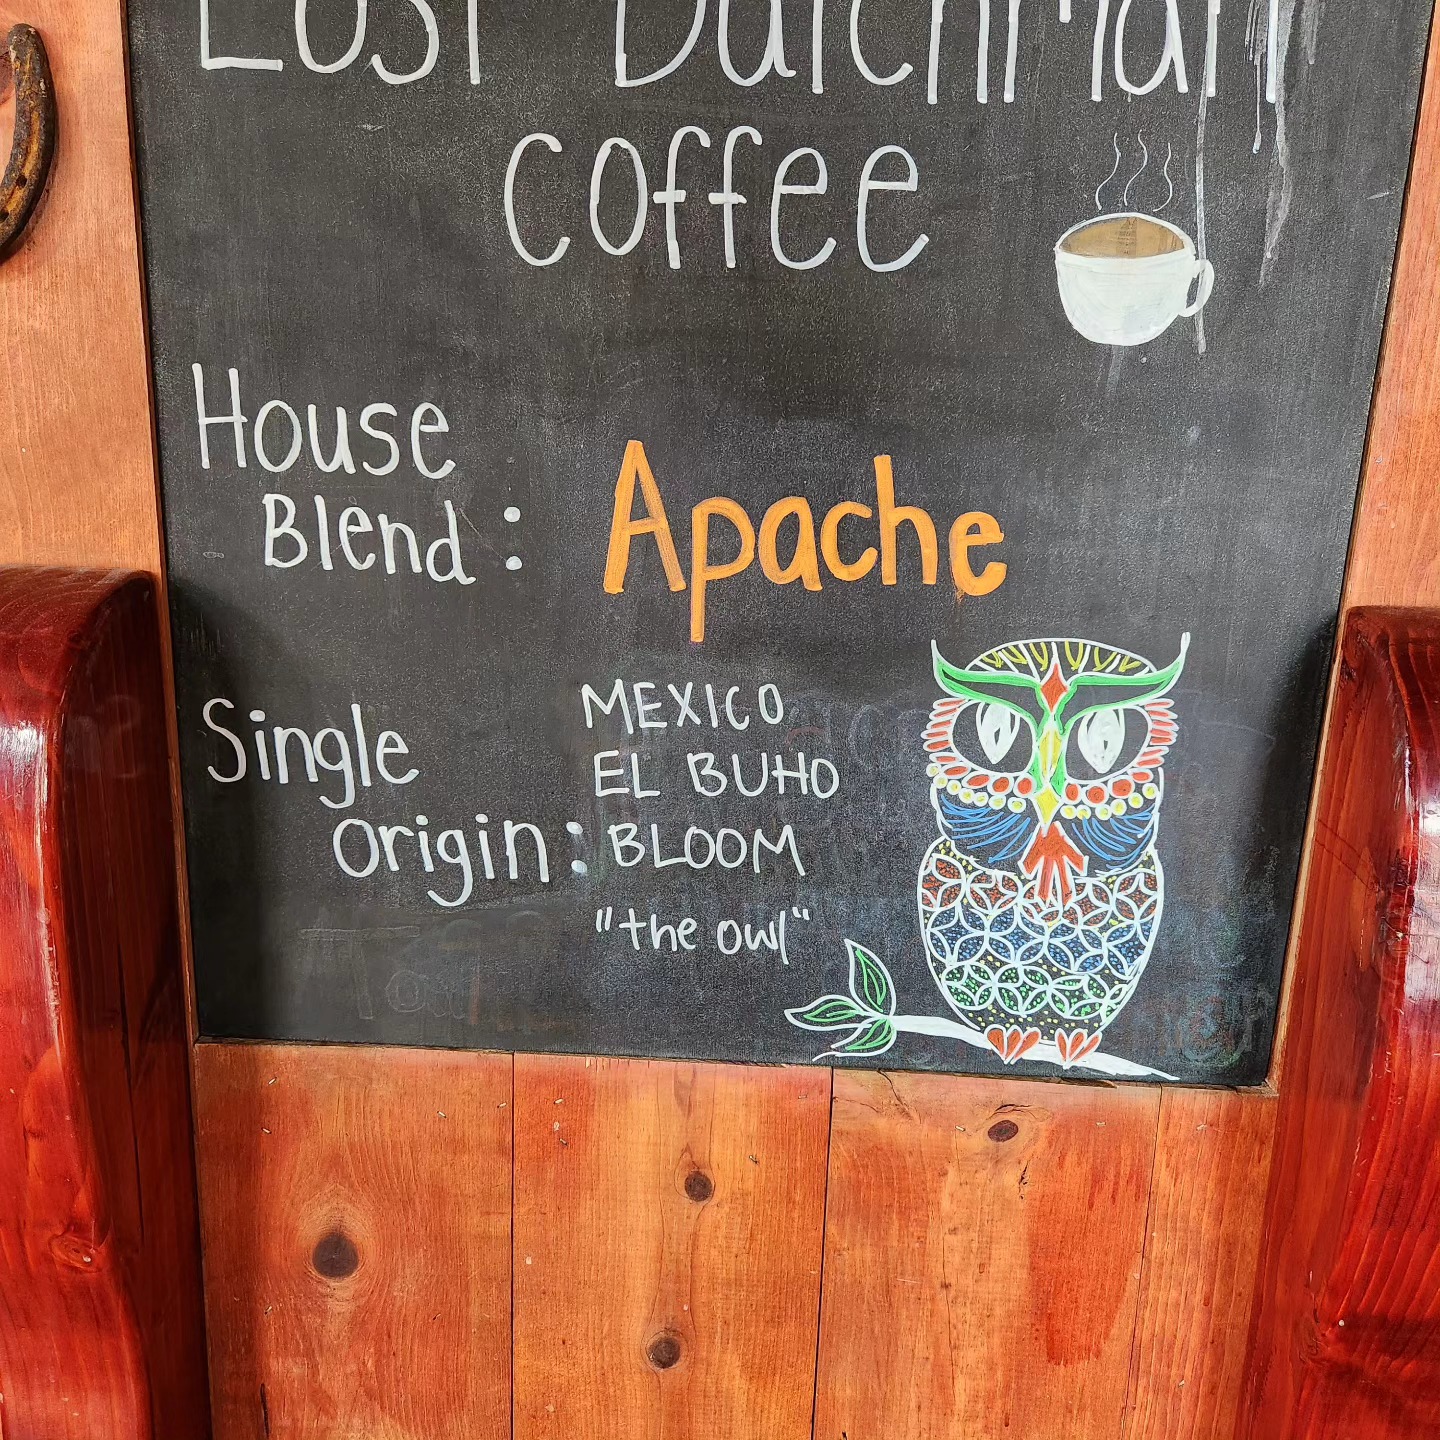 Lost Dutchman
coffee
House
Blend :
Apache
Single
Origin :
MEXICO
EL BUHO
BLOOM
"the owl"